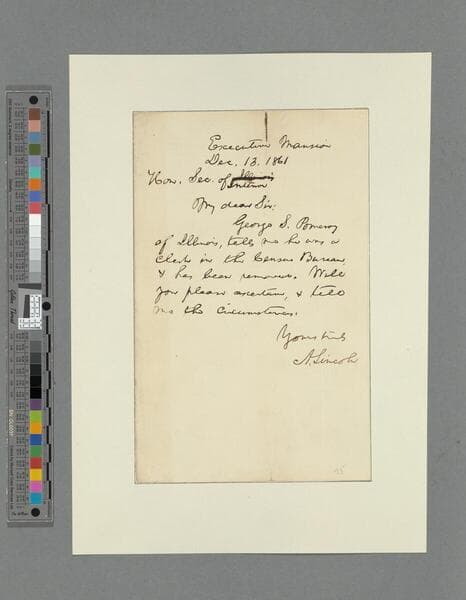 Executive Mansion
Dec. 13. 1861
Hon. Sec. of Illinois
Interior
My dear Sir:
George S. Pomeroy
of Illinois, tells me he was a
clerk in the Census Bureau,
& has been removed. Will
you please ascertain, & tell
me the circumstances.
Yours truly
A. Lincoln
95